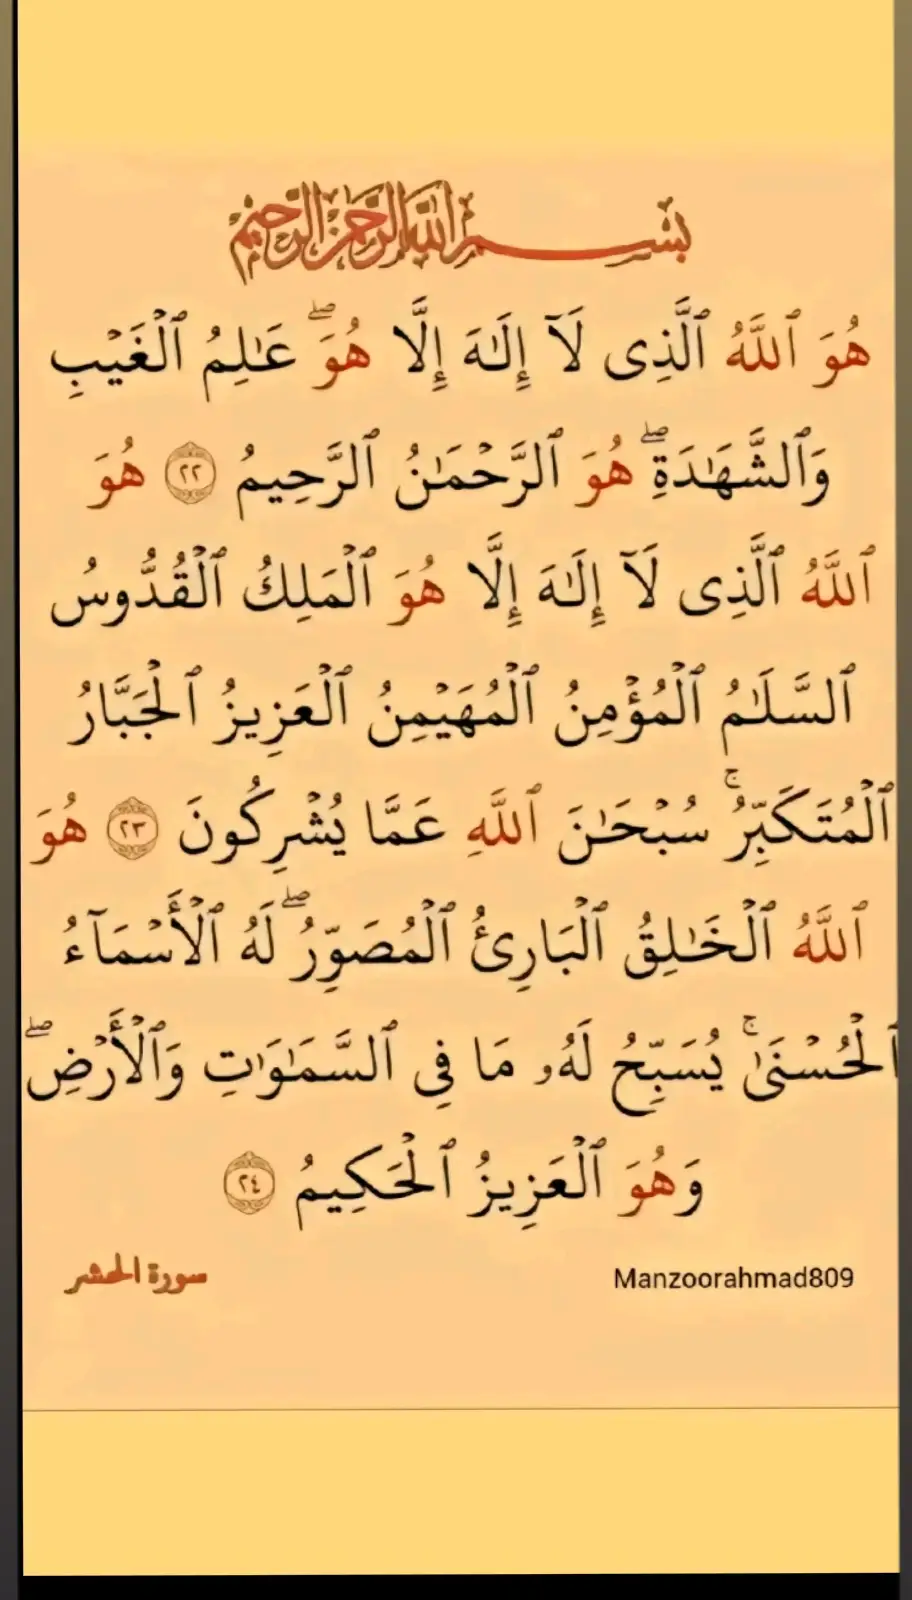 بِسْمِ اللَّهِ الرَّحْمَٰنِ الرَّحِيمِ
هُوَ ٱللَّهُ ٱلَّذِى لَآ إِلَٰهَ إِلَّا هُوَۖ عَٰلِمُ ٱلْغَيْبِ
وَٱلشَّهَٰدَةِۖ هُوَ ٱلرَّحْمَٰنُ ٱلرَّحِيمُ ٢٢ هُوَ
ٱللَّهُ ٱلَّذِى لَآ إِلَٰهَ إِلَّا هُوَ ٱلْمَلِكُ ٱلْقُدُّوسُ
ٱلسَّلَٰمُ ٱلْمُؤْمِنُ ٱلْمُهَيْمِنُ ٱلْعَزِيزُ ٱلْجَبَّارُ
ٱلْمُتَكَبِّرُۚ سُبْحَٰنَ ٱللَّهِ عَمَّا يُشْرِكُونَ ٢٣ هُوَ
ٱللَّهُ ٱلْخَٰلِقُ ٱلْبَارِئُ ٱلْمُصَوِّرُۖ لَهُ ٱلْأَسْمَآءُ
ٱلْحُسْنَىٰۚ يُسَبِّحُ لَهُۥ مَا فِى ٱلسَّمَٰوَٰتِ وَٱلْأَرْضِۖ
وَهُوَ ٱلْعَزِيزُ ٱلْحَكِيمُ ٢٤
سورة الحشر
Manzoorahmad809